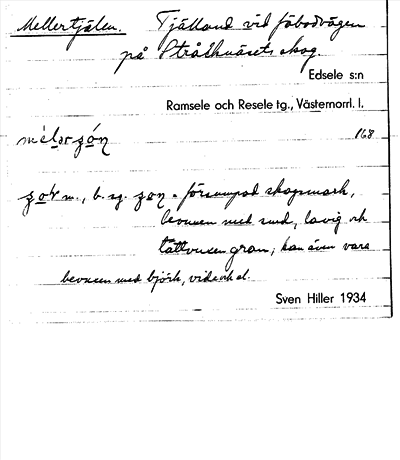 Mellertjälen. Tjälland vid fäbodvägen
på Stråhlnäsets skog.
Edsele s:n
Ramsele och Resele tg., Västernorrl. l.
168
m., b. sg. försumpad skogsmark,
bevuxen med små, lavig och
tättvuxen gran; kan även vara
bevuxen med björk, vide och d.
Sven Hiller 1934